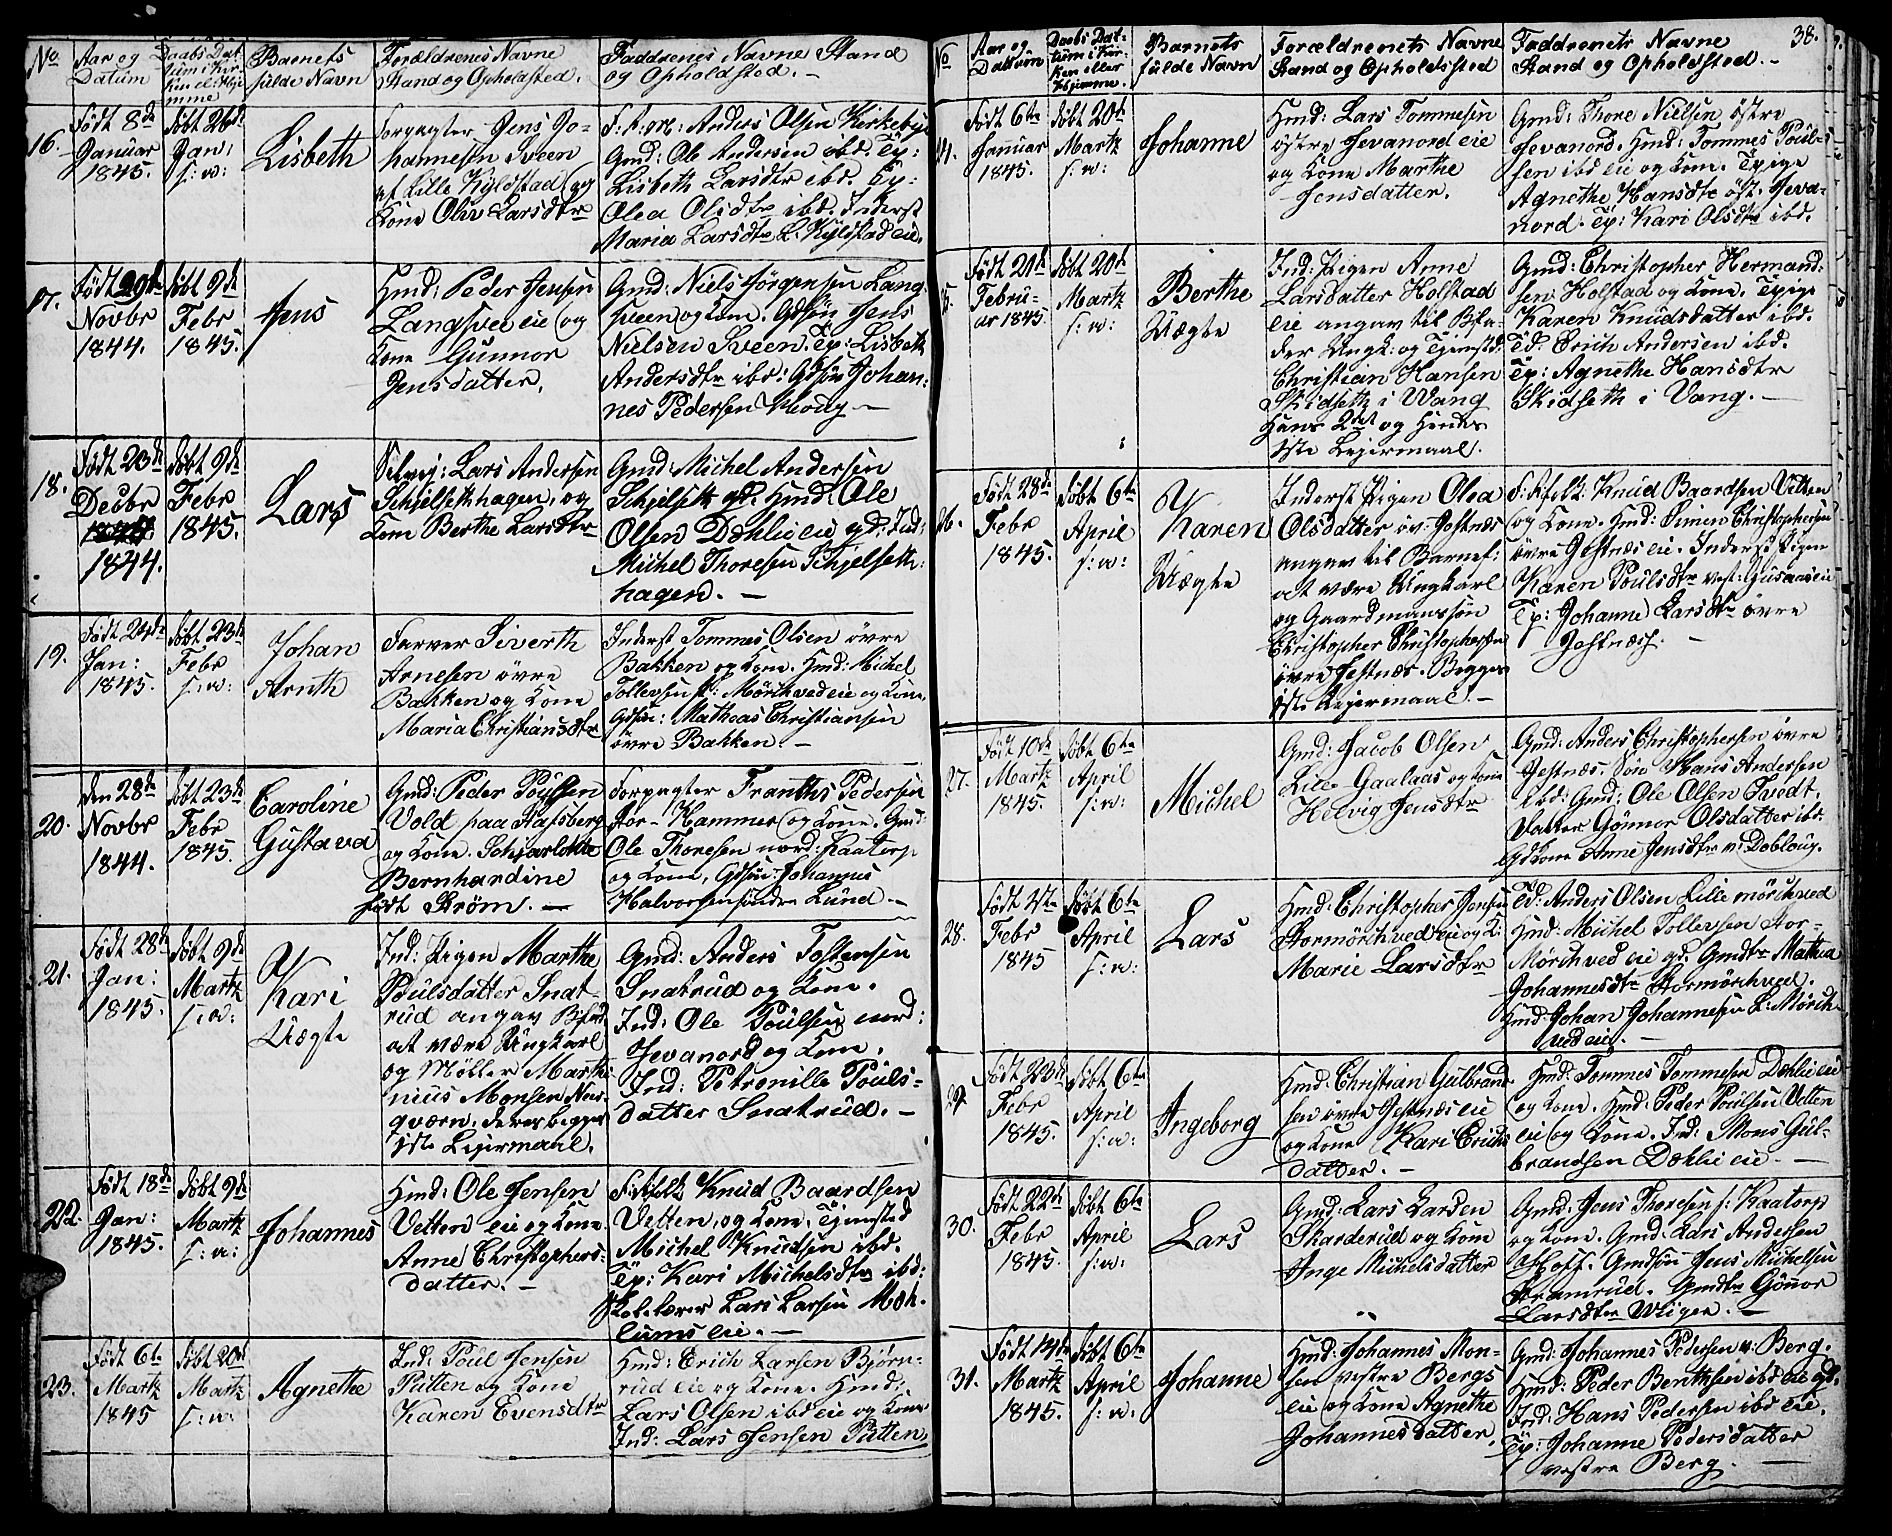 No
Aar og
Datum
Daabs Dat-
tum i Kir
ken el: Hje
mme
Barnets
fulde Navn
Forældrenes Navne
Stand og Opholdsted.
Faddrenes Navne Stand
og Opholdsted. -
16.
Født 8de
Januar
1845.
døbt 26de
Jan:
s: a:
Lisbeth
Forpagter Jens Jo-
hannesen Sveen
af Lille Kyldstad og
Kone Oliv Larsdtr
F. A: M: Anders Olsen Kirkebye
Gmd: Ole Andersen ibd. Tp:
Lisbeth Larsdtr ibd. Tp:
Olea Olsdtr ibd. Inderst
Maria Larsdtr L. Kyldstad eie.
17.
Født 29de
Novbr
1844.
døbt 9de
Febr
1845.
Jens
Hmd: Peder Jensen
Langsvee eie og
Kone Gunnor
Jensdatter.
Gmd: Niels Jörgensen Lang
sveen og Kone. Gdsøn Jens
Nielsen Sveen. Tp: Lisbeth
Andersdtr ibd: Gdsøn Johan-
nes Pedersen
18.
Født 23de
Decbr
1844.
døbt 9de
Febr
1845.
Lars
Selvej: Lars Andersen
Schjelsethhagen, og
Kone Berthe Larsdtr
Gmd: Michel Andersen
Schjelseth gd. Hmd: Ole
Olsen Dæhlie eie gd. Ind:
Michel Thoresen Schjelseth-
hagen. -
19.
Født 24de
Jan:
1845.
døbt 23de
Febr
s: a:
Johan
Arnth
Farver Siverth
Arnesen övre
Bakken og Kone
Maria Christiansdtr
Inderst Tommes Olsen övre
Bakken og Kone. Hmd: Michel
Tollevsen St: Mörchved eie og Kone.
Gdsøn: Mathias Christiansen
övre Bakken. -
20.
den 28de
Novbr
1844.
døbt 23de
Febr
1845.
Caroline
Gustava
Gmd: Peder
Vold paa Hafsberg
og Kone. Scharlotte
Bernhardine
født Strøm. -
Forpagter Franths Pedersen
Stor-Hammer og Kone. Gmd:
Ole Thoresen nord: Kaatorp
og Kone, Gdsøn: Johannes
Halvorsen søndre Lund. -
21.
Født 28de
Jan:
1845.
døbt 9de
Martz
s: a:
Kari
Uægte
Ind: Pigen Marthe
Poulsdatter Snat-
rud angav Bfad:
at være Ungkarl
og Möller Marthi-
nius Monsen Næs-
qværn. deres begges
1ste Leiermaal.
Gmd: Anders Tostensen
Snatrud og Kone.
Ind: Ole Poulsen nord:
Jevanord og Kone.
Ind: Petronille Pouls-
datter Snatrud. -
22.
Født 18de
Jan:
1845.
døbt 9de
Martz
s: a:
Johannes
Hmd: Ole Jensen
Vetten eie og Kone
Anne Christophers-
datter. -
F: Afolk Knud Baardsen
Vetten, og Kone. Tjenested
Michel Knudsen ibd.
Tp: Kari Michelsdtr ibd:
Skolelærer Lars Larsen Mæh-
lums eie. -
23.
Født 6te
Martz
1845
døbt 20de
Martz
s: a:
Agnethe
Ind: Poul Jensen
Putten og Kone
Karen Evensdtr
Hmd: Erich Larsen Bjørn-
rud eie og Kone. Hmd:
Lars Olsen ibd eie og Kone
Ind: Lars Jensen Putten
38.
No
Aar og
Dattum
Daabs Dat-
tum i Kir-
ken eller
Hjemme.
Barnets
fulde Navn
Forældrenets Navne
Stand og Opholdssted
Faddrenets Navne
Stand og Opholdssted. -
24.
Født 6te
Januar
1845.
døbt 20de
Martz
s: a:
Johanne
Hmd: Lars Tommesen
östre Jevanord eie
og Kone Marthe
Jensdatter.
Gmd: Thore Nielsen östre
Jevanord. Hmd: Tommes Poul-
sen ibd eie og Kone. Tpige
Agnethe Hansdtr öst. Jeva-
nord. Tp: Kari Olsdtr ibd.
25.
Født 21de
Febru-
ar 1845.
døbt 20de
Martz
s: a:
Berthe
Uægte
Ind: Pigen Anne
Larsdatter Holstad
eie angav til Bfa-
der Ungk: og Tjenestd:
Christian Hansen
Skidseth i Wang
Hans 2det og Hendes
1ste Leiermaal.
Gmd: Christopher Hermand-
sen Holstad og Kone. Tpige
Karen Knudsdatter ibd.
Td: Erich Andersen ibd.
Tp: Agnethe Hansdtr
Skidseth i Vang. -
26.
Født 28de
Febr
1845.
døbt 6te
April
s: a:
Karen
Uægte
Inderst Pigen Olea
Olsdatter öv: Jestnæs
angav til Barnef:
at være Ungkarl
og Gaardmandssøn
Christopher Christophersen
övre Jestnæs. Begges
1ste Leiermaal. -
F: Afolk: Knud Baardsen Vetten
og Kone. Hmd: Simen Christophersen
övre Jestnæs eie. Inderst Pigen
Karen Poulsdtr vest: Gusens eie
Tp: Johanne Larsdtr övre
Jestnæs. -
27.
Født 10de
Martz
1845.
døbt 6te
April
s: a:
Michel
Gmd: Jacob Olsen
Lille Gaalaas og Kone
Helvig Jensdtr
Gmd: Anders Christophersen övre
Jestnæs. Søn Hans Andersen
ibd: Gmd: Ole Olsen Tvedt.
Datter Gönnor Olsdatter ibd.
Gdkone Anne Jensdtr n: Dobloug.
28.
Født 4de
Febr
1845
døbt 6te
April
s: a:
Lars
Hmd: Christopher Jensen
Stormörchved eie og K:
Marie Larsdtr
Td: Anders Olsen Lille mörchved
Hmd: Michel Tollevsen Stor-
Mörchved eie gd. Gmdtr Mathea
Johannesdtr Stormörchved.
Hmd: Johan Johannesen L: Mörch-
ved eie. -
29.
Født 23de
Febr
1845.
døbt 6te
April
s: a:
Ingeborg
Hmd: Christian Gulbrand-
sen övre Jestnæs eie
og Kone Kari Erichs-
datter. -
Hmd: Tommes Tommesen Dæhlie eie
og Kone. Hmd: Peder Poulsen Vetten
eie og Kone. Ind: Mons Gul-
brandsen Dæhlie eie. -
30.
Født 22de
Febr
1845.
døbt 6te
April
s: a:
Lars
Gmd: Lars Larsen
Skarderud og Kone
Inge Michelsdatter
Gmd: Jens Thoresen s: Kaatorp
og Kone. Gmd: Lars Andersen
af Hoff. Gmdsøn Jens Michelsen
Framrud. Gmdtr Gönnor
Larsdtr Wigen. -
31.
Født 14de
Martz
1845.
døbt 6te
April
s: a:
Johanne
Hmd: Johannes Mon-
sen vestre Bergs
eie og Kone Agnethe
Johannesdatter.
Gmd: Johannes Pedersen v: Berg.
Hmd: Peder Benthsen ibd eie gd.
Ind: Hans Pedersen ibd eie.
Tp: Johanne Pedersdatter
vestre Berg. -